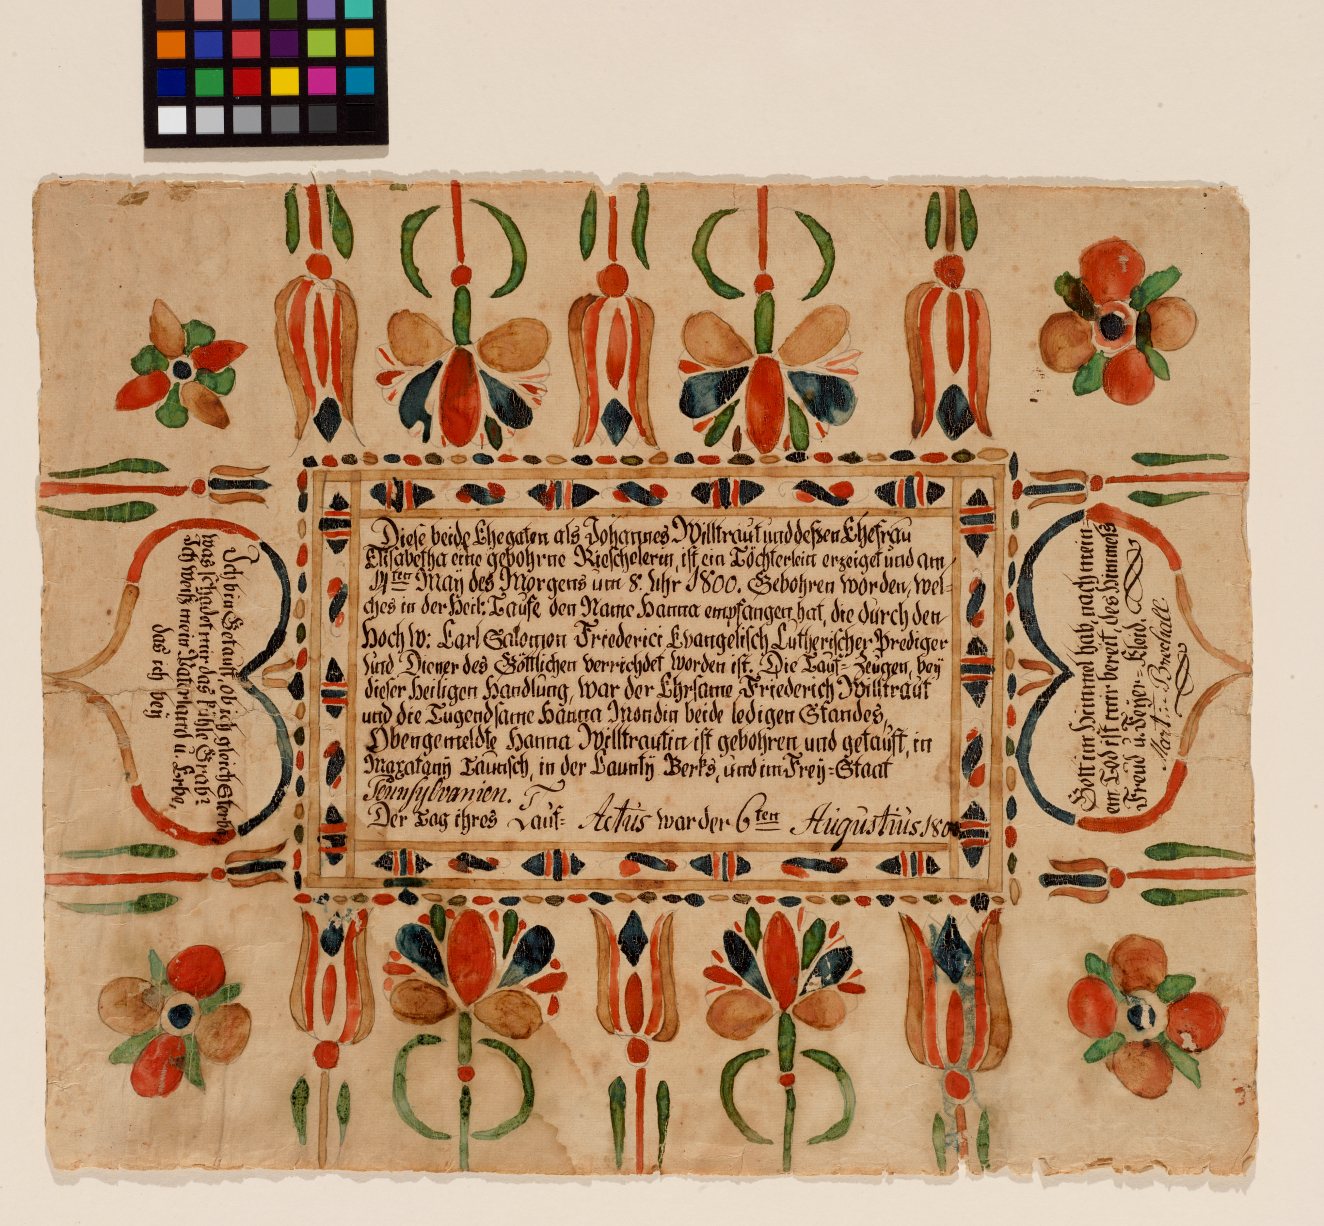 Diese beide Ehegaten als Johannes Willtraut und deßen Ehefrau
Elisabetha eine gebohrne Rieschelerin, ist ein Töchterlein erzeiget und am
14ten May des Morgens um 8. Uhr 1800. Gebohren worden, wel-
ches in der Heil: Taufe den Name Hanna empfangen hat, die durch den
Hoch W: Carl Salomon Friederici Evangelisch Lutherischer Prediger
und Diener des Göttlichen verrichdet worden ist. Die Tauf= Zeugen, bey
dieser Heiligen Handlung, war der Ehrsame Friederich Willtraut
und die Tugendsame Hanna Mondin beide ledigen Standes,
Obengemeldte Hanna Willtrautin ist gebohren und getauft, in
Maxatany Taunsch, in der Caunty Berks, und im Frey=Staat
Pennsylvanien.
Der Tag ihres Tauf= Actus war der 6ten Augustus 1800
Ich bin Getauft, ob ich gleich Sterbe,
was schadet mir das kühle Grab?
Ich weiß mein Vaterland u. Erbe,
das ich bey
Gott im Himmel hab, nach mein-
em Tod ist mir bereit, des Himmels
Freud u. Feyer=Kleid.
Mart:: Brechall.